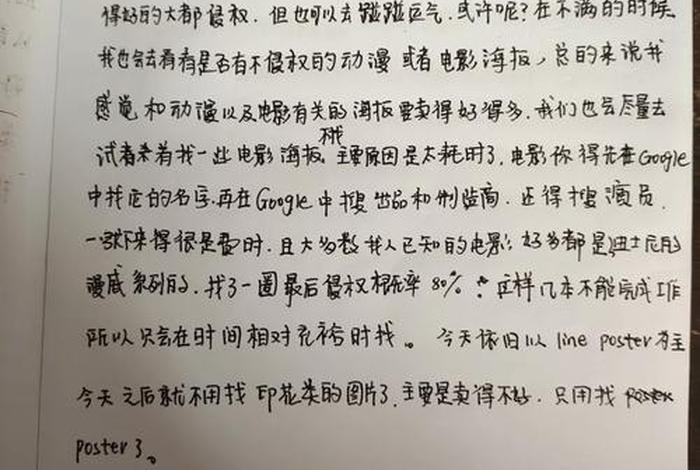 得好的大都侵权。但也可以去踫踫运气。或许呢？在不满的时候
我也会去看看是否有不侵权的动漫或者电影海报，总的来说我
感觉和动漫以及电影有关的海报要卖得好得多。我们也会尽量去
试着来着找一些电影海报，不找主要原因是太耗时了，电影你得先在Google
中找它的名字，再在Google中搜出品和制监商。还得搜演员。
一歇下来得很是费时。且大多数我人已知的电影好多都是迪士尼的
漫威系列的。找了一圈最后侵权概率80%。这样几本不能完成工作
所以只会在时间相对充裕时找。 今天依旧以line poster为主
今天之后就不用找印花类的图片了。主要是卖得不好。只用找
poster了。